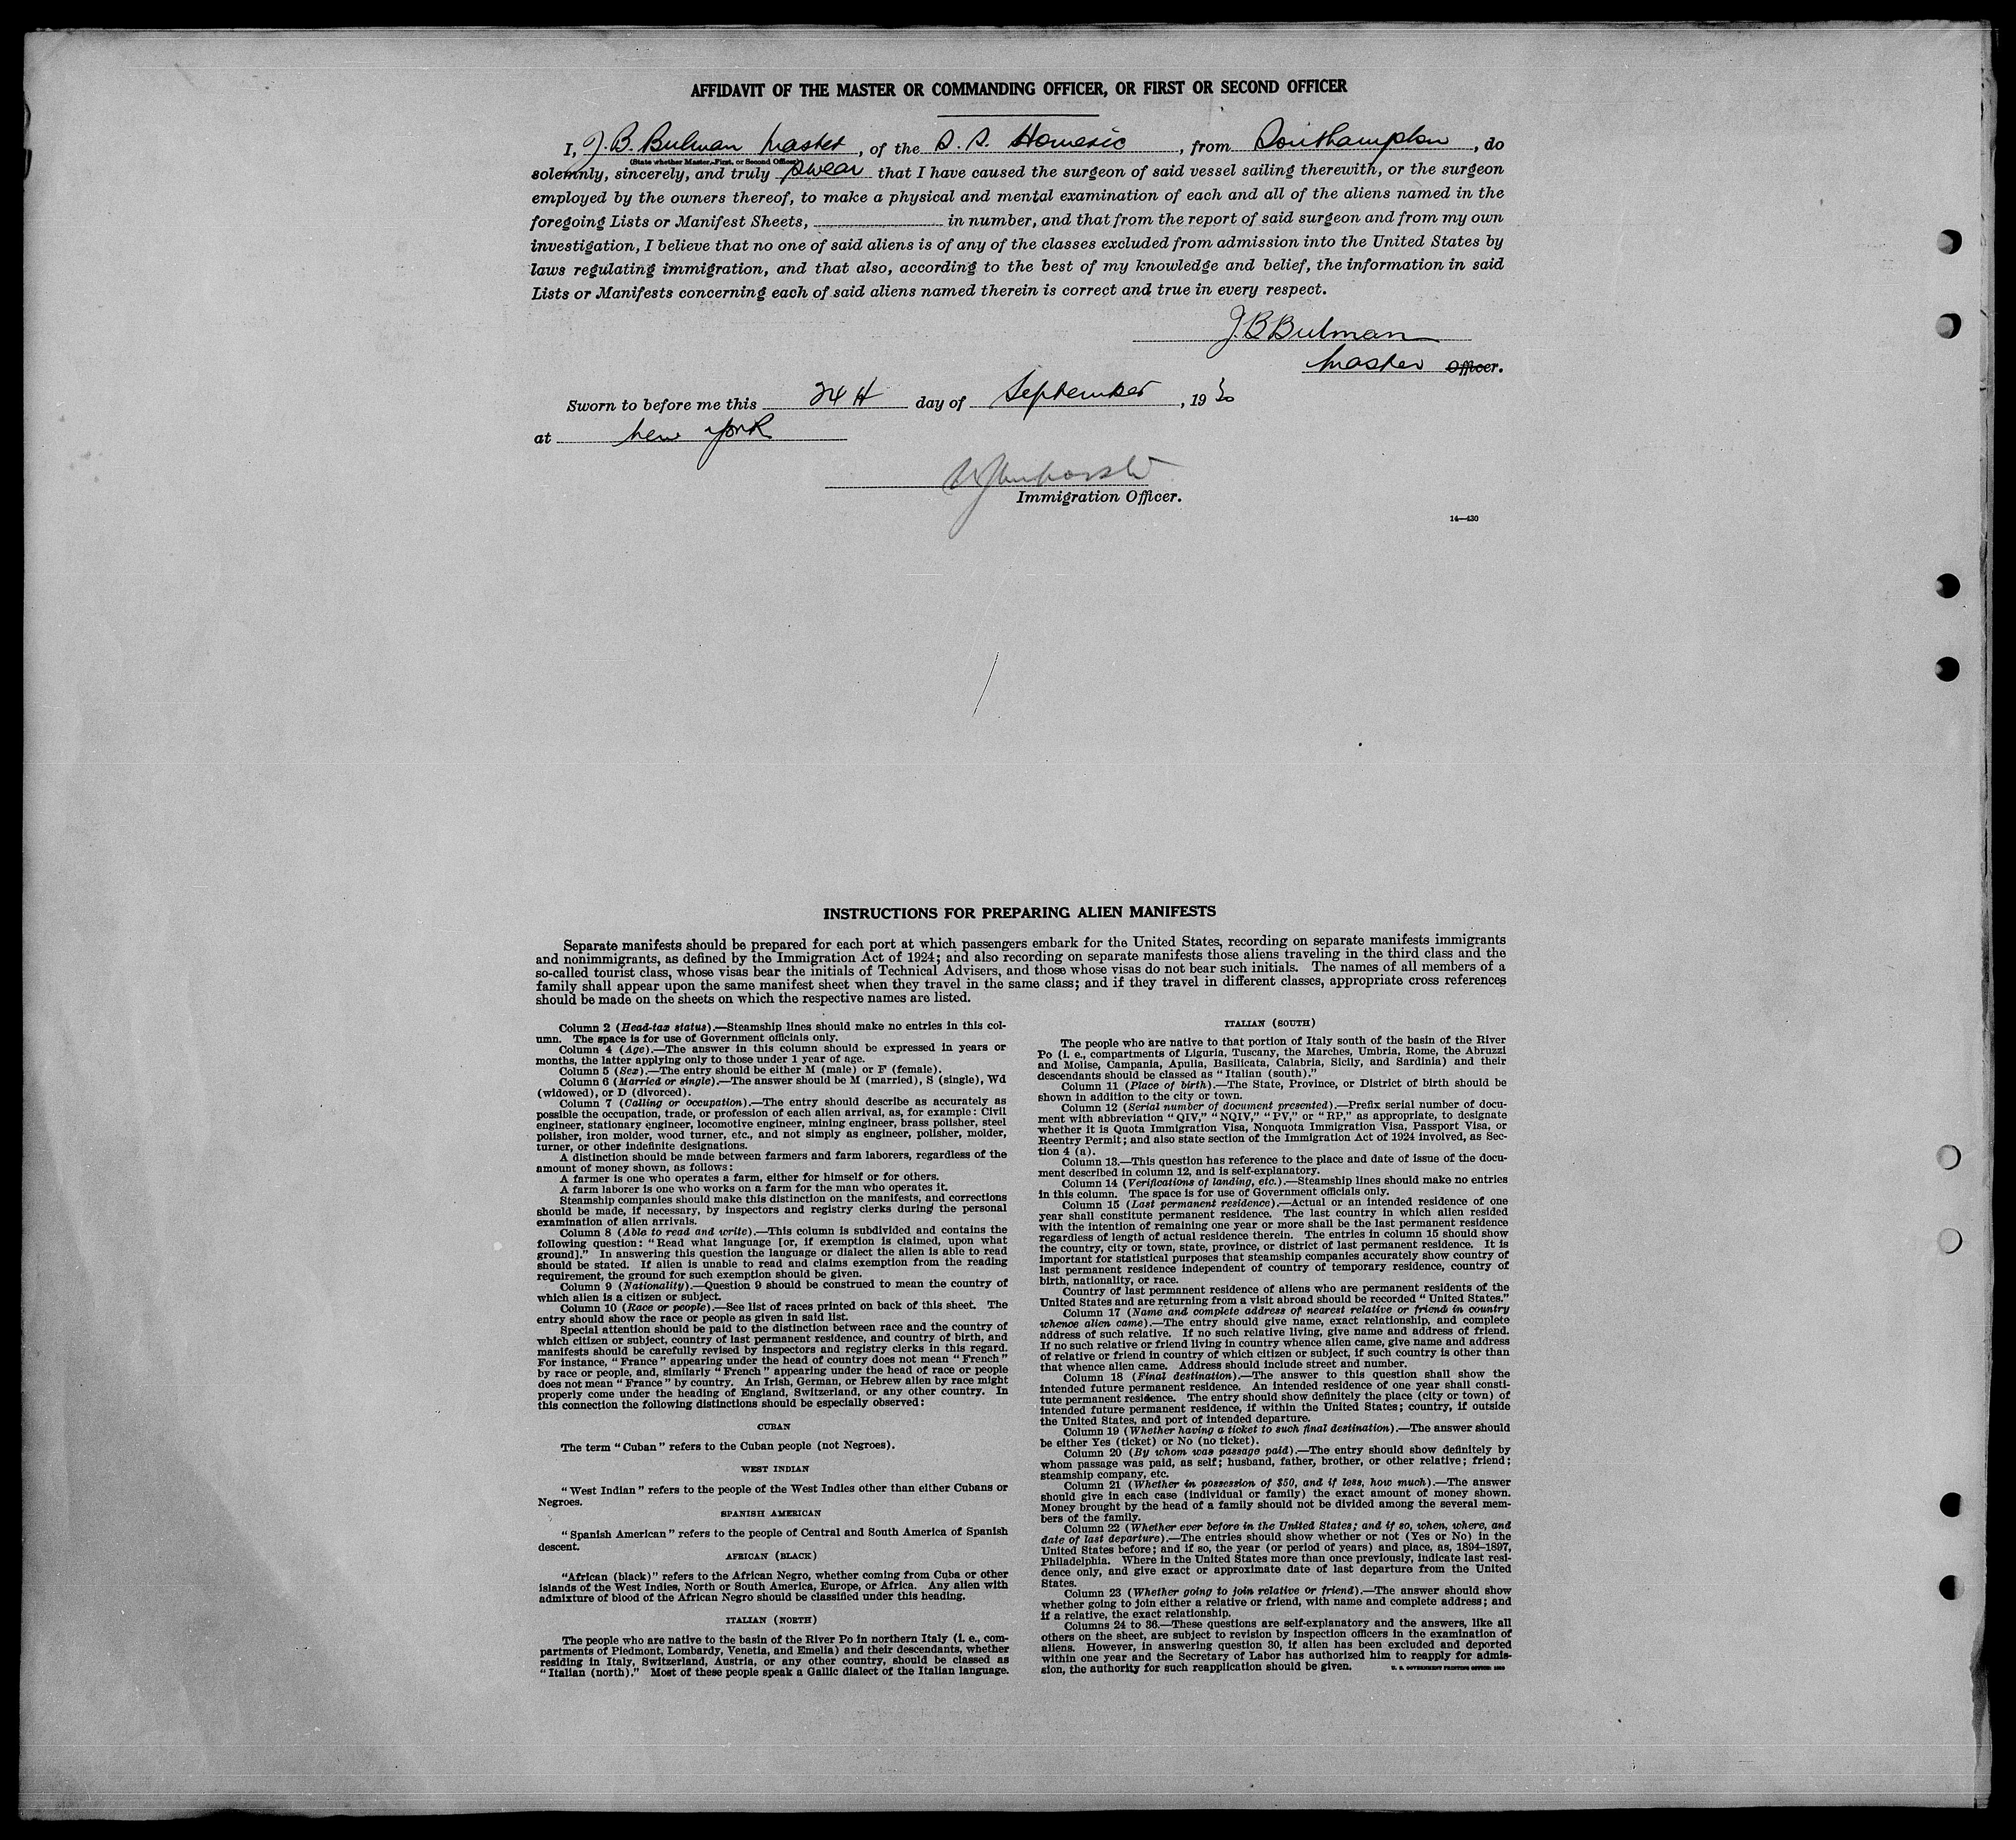 AFFIDAVIT OF THE MASTER OR COMMANDING OFFICER, OR FIRST OR SECOND OFFICER
I, J. B. Bulman Master, of the S. S. Homeric, from Southampton, do
(State whether Master, First, or Second Officer)
solemnly, sincerely, and truly swear that I have caused the surgeon of said vessel sailing therewith, or the surgeon
employed by the owners thereof, to make a physical and mental examination of each and all of the aliens named in the
foregoing Lists or Manifest Sheets, in number, and that from the report of said surgeon and from my own
investigation, I believe that no one of said aliens is of any of the classes excluded from admission into the United States by
laws regulating immigration, and that also, according to the best of my knowledge and belief, the information in said
Lists or Manifests concerning each of said aliens named therein is correct and true in every respect.
J. B Bulman
Master Officer.
Sworn to before me this 24th day of September, 1930
at New York
Immigration Officer.
14—430
INSTRUCTIONS FOR PREPARING ALIEN MANIFESTS
Separate manifests should be prepared for each port at which passengers embark for the United States, recording on separate manifests immigrants
and nonimmigrants, as defined by the Immigration Act of 1924; and also recording on separate manifests those aliens traveling in the third class and the
so-called tourist class, whose visas bear the initials of Technical Advisers, and those whose visas do not bear such initials. The names of all members of a
family shall appear upon the same manifest sheet when they travel in the same class; and if they travel in different classes, appropriate cross references
should be made on the sheets on which the respective names are listed.
Column 2 (Head-tax status).—Steamship lines should make no entries in this col-
umn. The space is for use of Government officials only.
Column 4 (Age).—The answer in this column should be expressed in years or
months, the latter applying only to those under 1 year of age.
Column 5 (Sex).—The entry should be either M (male) or F (female).
Column 6 (Married or single).—The answer should be M (married), S (single), Wd
(widowed), or D (divorced).
Column 7 (Calling or occupation).—The entry should describe as accurately as
possible the occupation, trade, or profession of each alien arrival, as, for example: Civil
engineer, stationary engineer, locomotive engineer, mining engineer, brass polisher, steel
polisher, iron molder, wood turner, etc., and not simply as engineer, polisher, molder,
turner, or other indefinite designations.
A distinction should be made between farmers and farm laborers, regardless of the
amount of money shown, as follows:
A farmer is one who operates a farm, either for himself or for others.
A farm laborer is one who works on a farm for the man who operates it.
Steamship companies should make this distinction on the manifests, and corrections
should be made, if necessary, by inspectors and registry clerks during the personal
examination of alien arrivals.
Column 8 (Able to read and write).—This column is subdivided and contains the
following question: "Read what language [or, if exemption is claimed, upon what
ground]." In answering this question the language or dialect the alien is able to read
should be stated. If alien is unable to read and claims exemption from the reading
requirement, the ground for such exemption should be given.
Column 9 (Nationality).—Question 9 should be construed to mean the country of
which alien is a citizen or subject.
Column 10 (Race or people).—See list of races printed on back of this sheet. The
entry should show the race or people as given in said list.
Special attention should be paid to the distinction between race and the country of
which citizen or subject, country of last permanent residence, and country of birth, and
manifests should be carefully revised by inspectors and registry clerks in this regard.
For instance, "France" appearing under the head of country does not mean "French"
by race or people, and, similarly "French" appearing under the head of race or people
does not mean "France" by country. An Irish, German, or Hebrew alien by race might
properly come under the heading of England, Switzerland, or any other country. In
this connection the following distinctions should be especially observed:
CUBAN
The term "Cuban" refers to the Cuban people (not Negroes).
WEST INDIAN
"West Indian" refers to the people of the West Indies other than either Cubans or
Negroes.
SPANISH AMERICAN
"Spanish American" refers to the people of Central and South America of Spanish
descent.
AFRICAN (BLACK)
"African (black)" refers to the African Negro, whether coming from Cuba or other
islands of the West Indies, North or South America, Europe, or Africa. Any alien with
admixture of blood of the African Negro should be classified under this heading.
ITALIAN (NORTH)
The people who are native to the basin of the River Po in northern Italy (i. e., com-
partments of Piedmont, Lombardy, Venetia, and Emelia) and their descendants, whether
residing in Italy, Switzerland, Austria, or any other country, should be classed as
"Italian (north)." Most of these people speak a Gallic dialect of the Italian language.
ITALIAN (SOUTH)
The people who are native to that portion of Italy south of the basin of the River
Po (i. e., compartments of Liguria, Tuscany, the Marches, Umbria, Rome, the Abruzzi
and Molise, Campania, Apulia, Basilicata, Calabria, Sicily, and Sardinia) and their
descendants should be classed as "Italian (south)."
Column 11 (Place of birth).—The State, Province, or District of birth should be
shown in addition to the city or town.
Column 12 (Serial number of document presented).—Prefix serial number of docu-
ment with abbreviation "QIV," "NQIV," "PV," or "RP," as appropriate, to designate
whether it is Quota Immigration Visa, Nonquota Immigration Visa, Passport Visa, or
Reentry Permit; and also state section of the Immigration Act of 1924 involved, as Sec-
tion 4 (a).
Column 13.—This question has reference to the place and date of issue of the docu-
ment described in column 12, and is self-explanatory.
Column 14 (Verifications of landing, etc.).—Steamship lines should make no entries
in this column. The space is for use of Government officials only.
Column 15 (Last permanent residence).—Actual or an intended residence of one
year shall constitute permanent residence. The last country in which alien resided
with the intention of remaining one year or more shall be the last permanent residence
regardless of length of actual residence therein. The entries in column 15 should show
the country, city or town, state, province, or district of last permanent residence. It is
important for statistical purposes that steamship companies accurately show country of
last permanent residence independent of country of temporary residence, country of
birth, nationality, or race.
Country of last permanent residence of aliens who are permanent residents of the
United States and are returning from a visit abroad should be recorded "United States."
Column 17 (Name and complete address of nearest relative or friend in country
whence alien came).—The entry should give name, exact relationship, and complete
address of such relative. If no such relative living, give name and address of friend.
If no such relative or friend living in country whence alien came, give name and address
of relative or friend in country of which citizen or subject, if such country is other than
that whence alien came. Address should include street and number.
Column 18 (Final destination).—The answer to this question shall show the
intended future permanent residence. An intended residence of one year shall consti-
tute permanent residence. The entry should show definitely the place (city or town) of
intended future permanent residence, if within the United States; country, if outside
the United States, and port of intended departure.
Column 19 (Whether having a ticket to such final destination).—The answer should
be either Yes (ticket) or No (no ticket).
Column 20 (By whom was passage paid).—The entry should show definitely by
whom passage was paid, as self; husband, father, brother, or other relative; friend;
steamship company, etc.
Column 21 (Whether in possession of $50, and if less, how much).—The answer
should give in each case (individual or family) the exact amount of money shown.
Money brought by the head of a family should not be divided among the several mem-
bers of the family.
Column 22 (Whether ever before in the United States; and if so, when, where, and
date of last departure).—The entries should show whether or not (Yes or No) in the
United States before; and if so, the year (or period of years) and place, as, 1894–1897,
Philadelphia. Where in the United States more than once previously, indicate last resi-
dence only, and give exact or approximate date of last departure from the United
States.
Column 23 (Whether going to join relative or friend).—The answer should show
whether going to join either a relative or friend, with name and complete address; and
if a relative, the exact relationship.
Columns 24 to 36.—These questions are self-explanatory and the answers, like all
others on the sheet, are subject to revision by inspection officers in the examination of
aliens. However, in answering question 30, if alien has been excluded and deported
within one year and the Secretary of Labor has authorized him to reapply for admis-
sion, the authority for such reapplication should be given.
U. S. GOVERNMENT PRINTING OFFICE